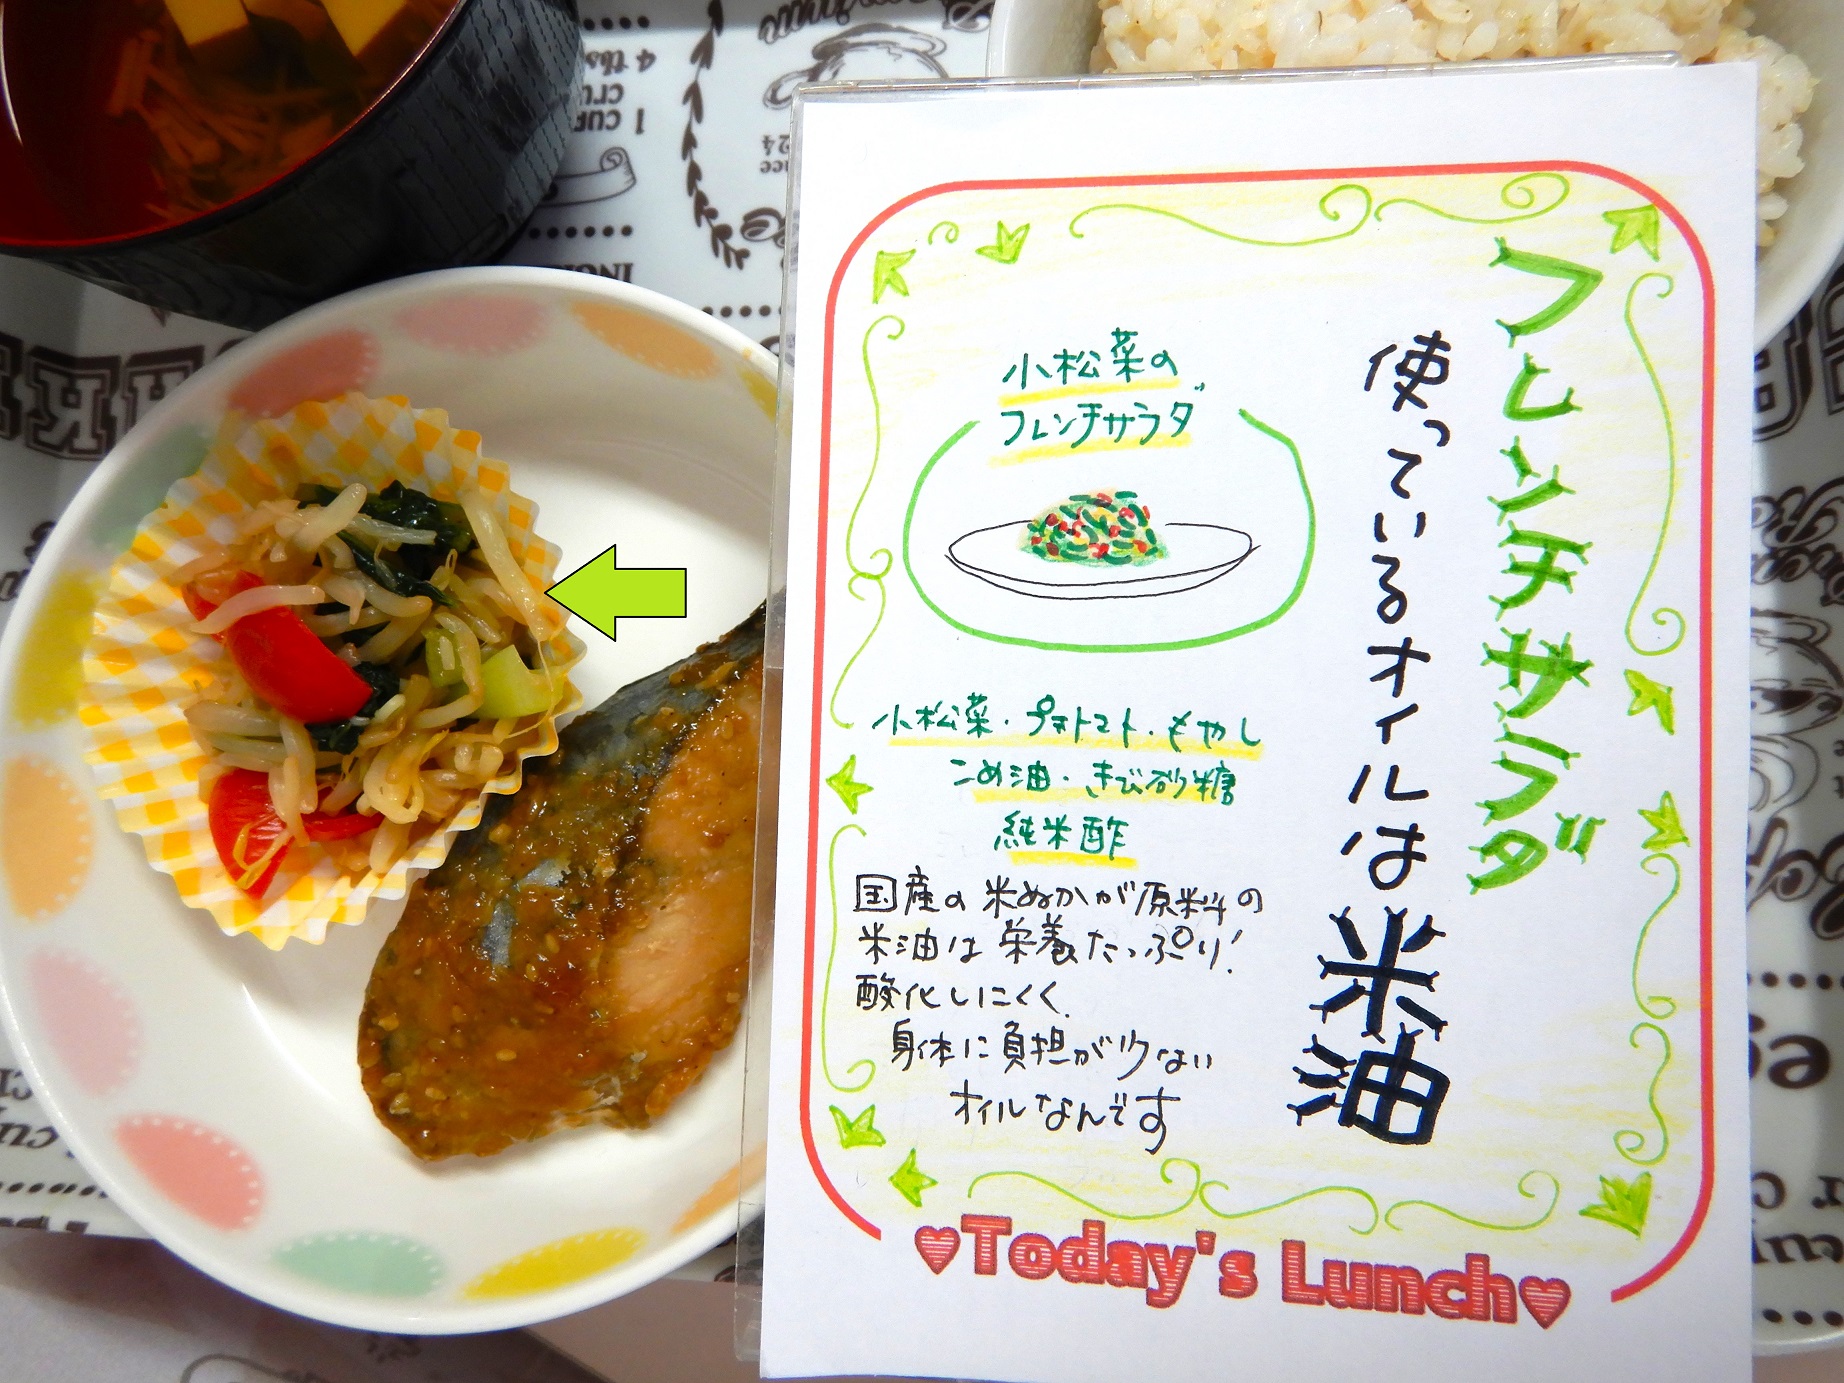 フレンチサラダ
使っているオイルは
米油
小松菜の
フレンチサラダ
小松菜・プチトマト・もやし
こめ油・きび砂糖
純米酢
国産の米ぬかが原料の
米油は栄養たっぷり!
酸化しにくく
身体に負担が少ない
オイルなんです
♥Today's Lunch♥
4 tbs
1 CUP